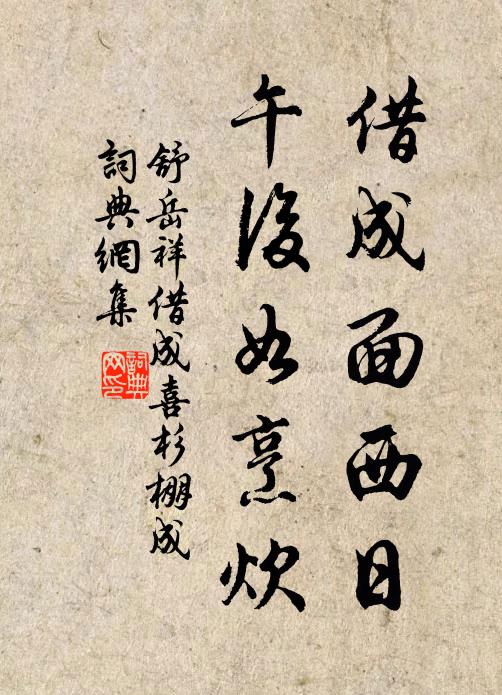 借成面西日
午後如烹炊
舒岳祥借成喜杉棚成
詞典網集
詞典网印